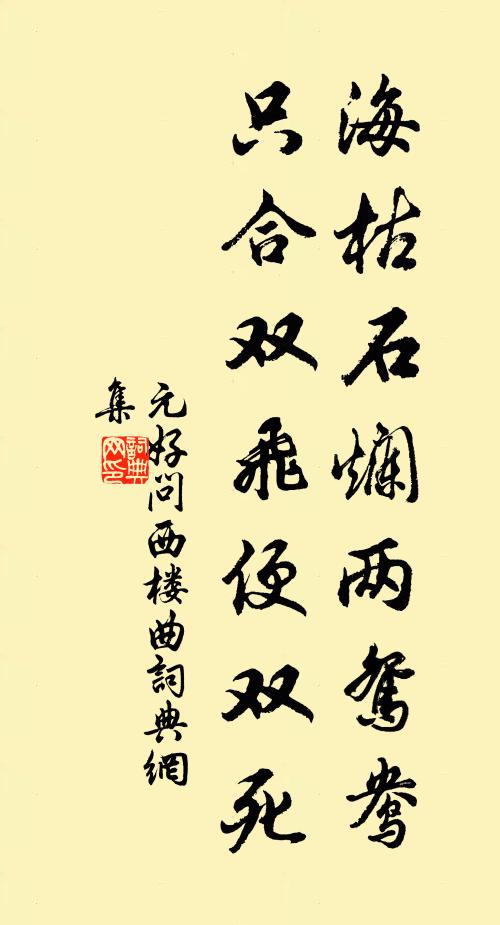 海枯石烂两鸳鸯
只合双飞便双死
元好问西楼曲詞典網
集
詞典
网印